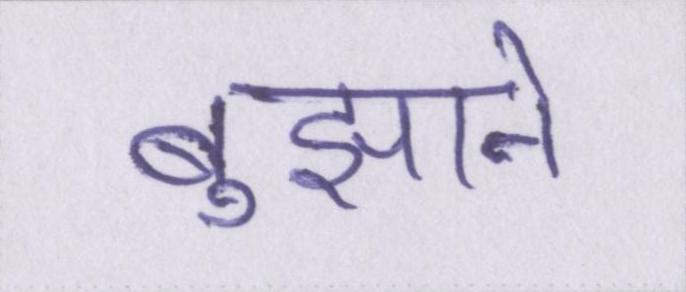 बुझाने